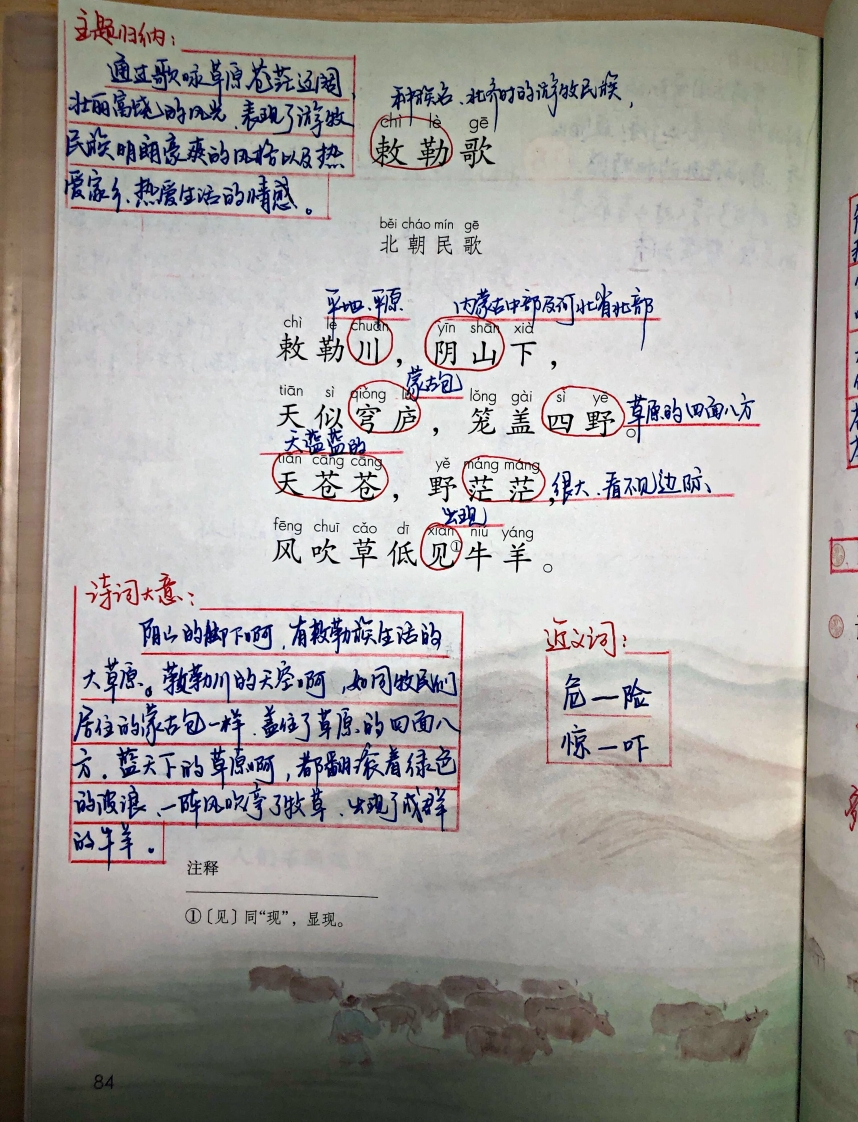 主题归纳：
通过歌咏草原苍茫辽阔，
壮丽富饶的风光、表现了游牧
民族明朗豪爽的风格以及热
爱家乡、热爱生活的情感。
种族名、北齐时的游牧民族，
chì lè gē
敕勒歌
běi cháo mín gē
北朝民歌
平地、平原
内蒙古中部及河北省北部
chì lè chuān yīn shān xià
敕勒川，阴山下，
蒙古包
tiān sì qióng lú lǒng gài sì yě
天似穹庐，笼盖四野。
草原的四面八方
天蓝蓝的
tiān cāng cāng yě máng máng
天苍苍，野茫茫，
很大、看不见边际、
出现
fēng chuī cǎo dī xiàn niú yáng
风吹草低见①牛羊。
诗词大意：
阴山的脚下啊，有敕勒族生活的
大草原。敕勒川的天空啊，如同牧民们
居住的蒙古包一样、盖住了草原的四面八
方。蓝天下的草原啊，都翻滚着绿色
的波浪、一阵风吹弯了牧草、出现了成群
的牛羊。
近义词：
危—险
惊—吓
注释
①〔见〕同“现”，显现。
84